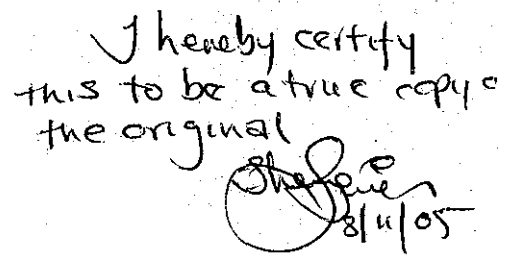 I hereby certify
this to be a true copy o
the original
8/11/05